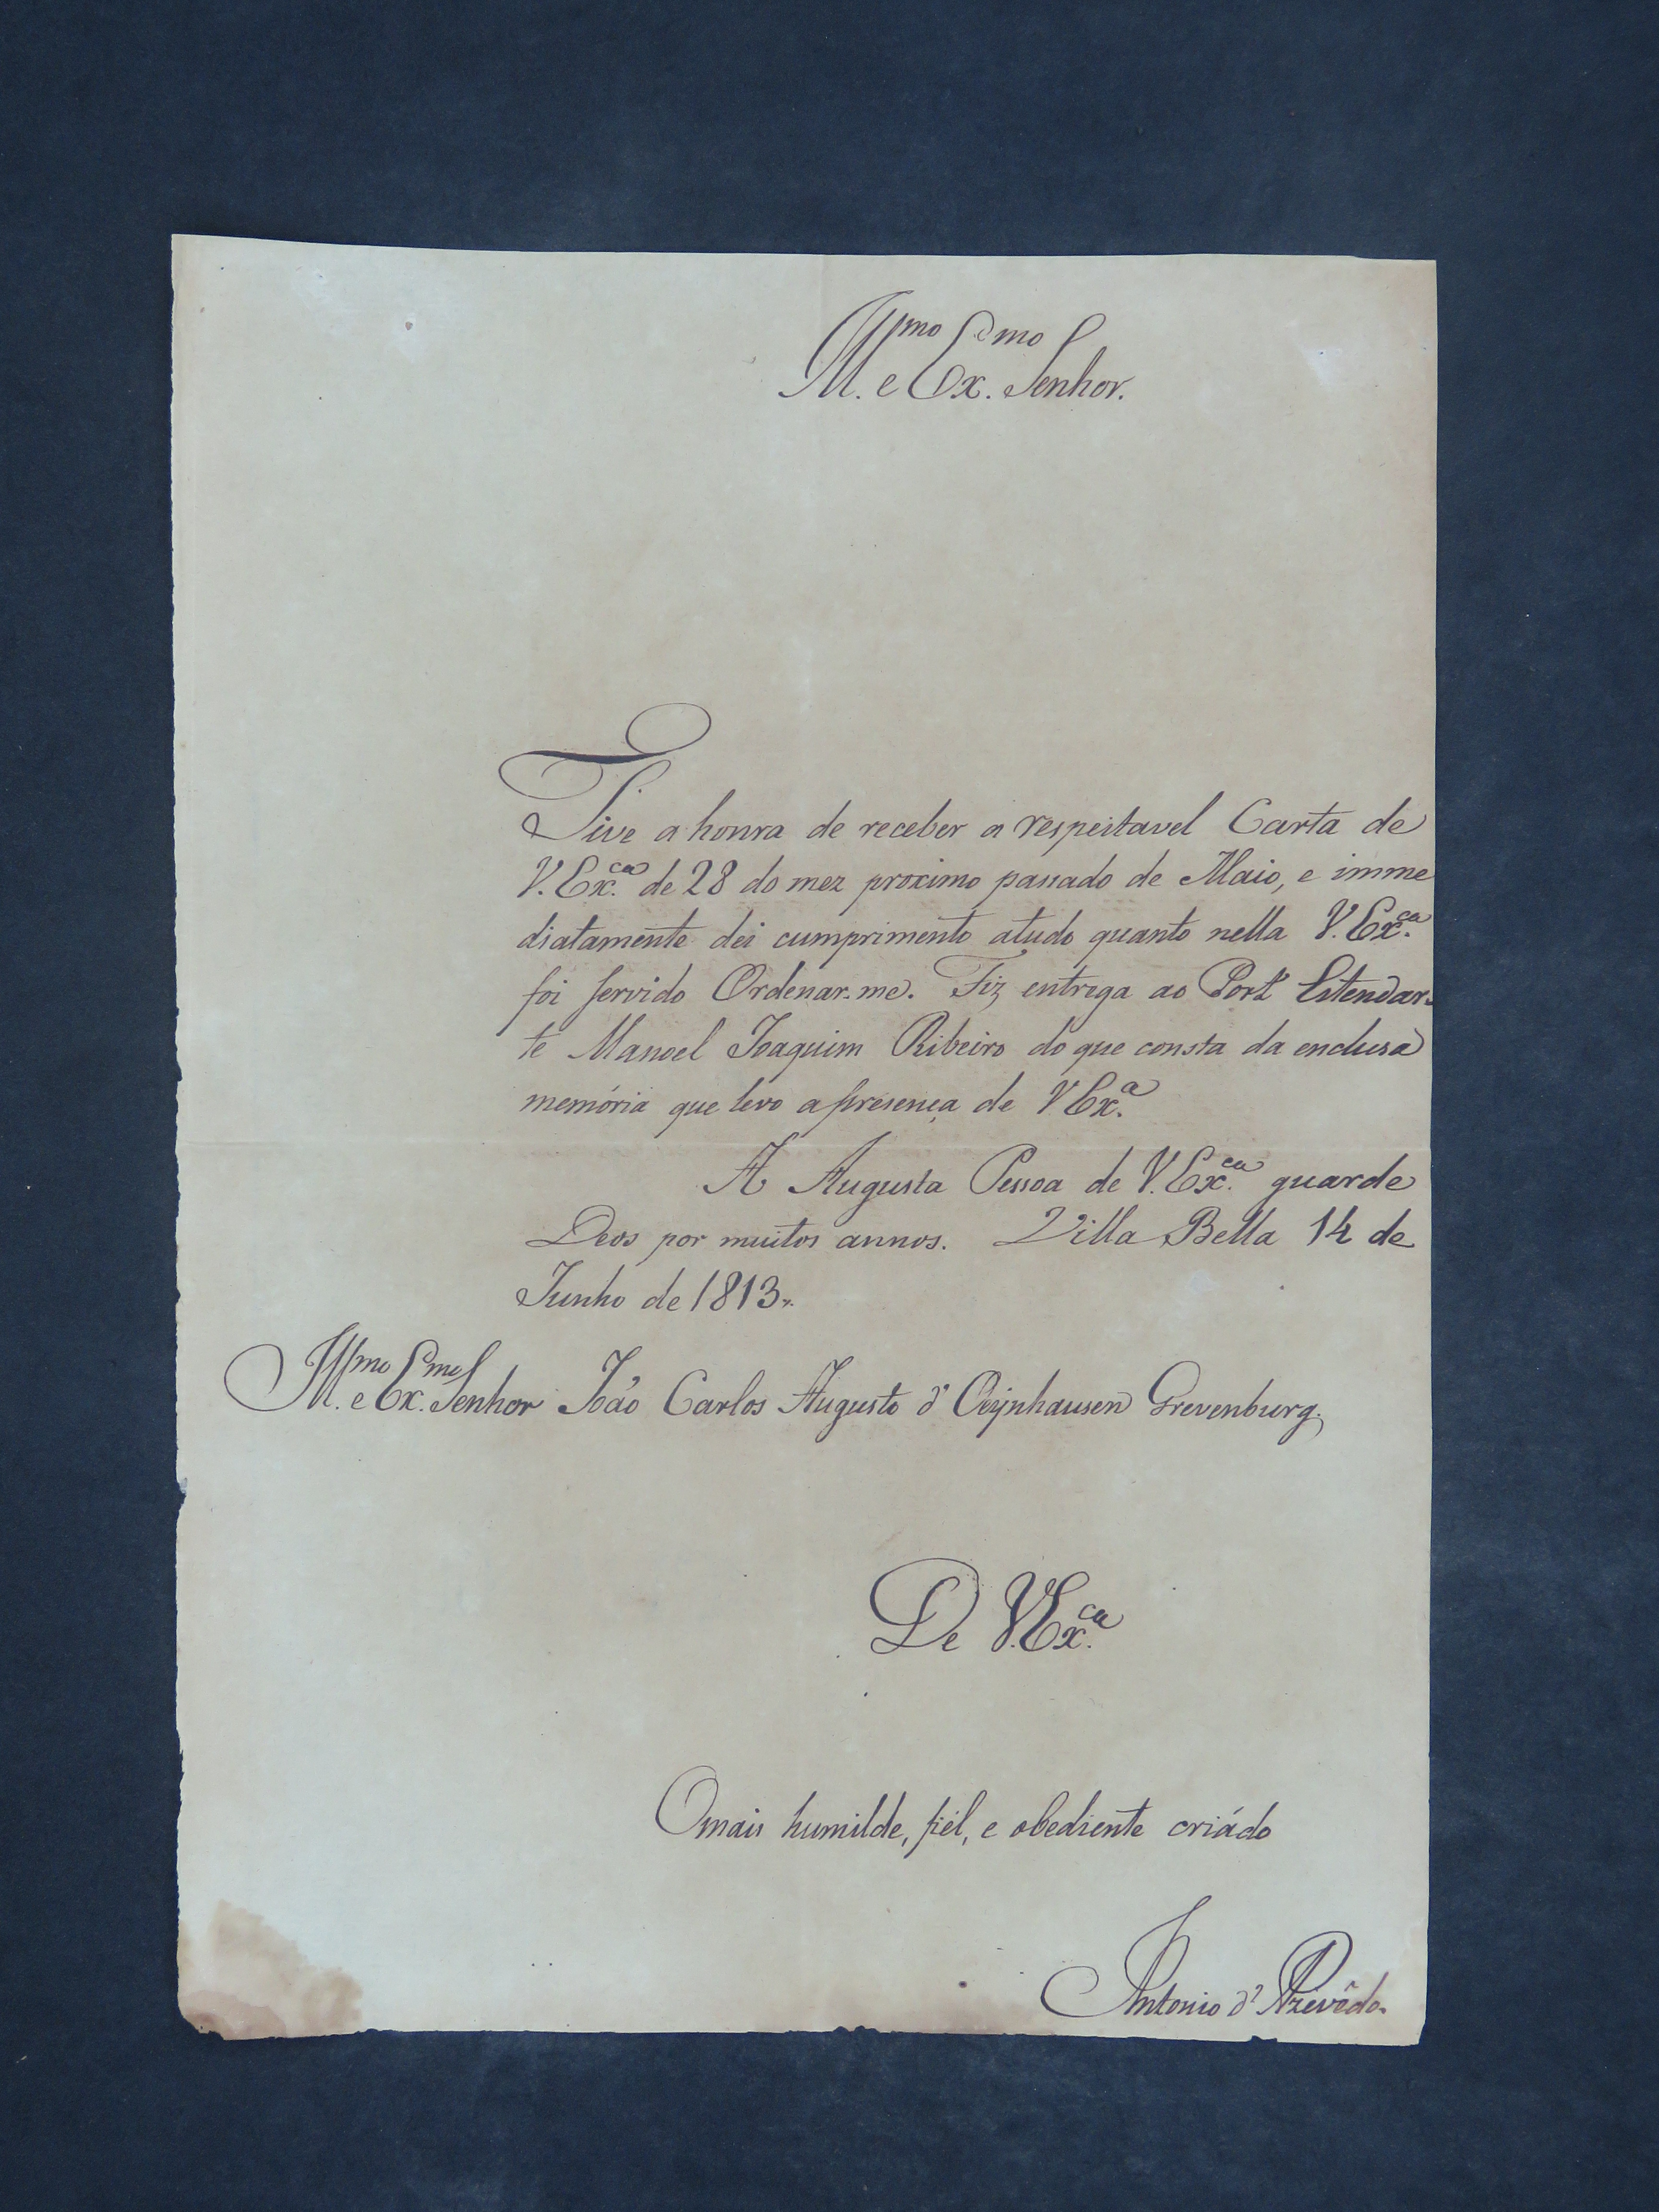 Ill.mo e Ex.mo Senhor.
Tive a honra de receber a respeitavel Carta de
V. Ex.ca de 28 do mez proximo passado de Maio, e imme
diatamente dei cumprimento atudo quanto nella V. Ex.ca
foi servido Ordenar-me. Fiz entrega ao Port' Estendar-
te Manoel Joaquim Ribeiro do que consta da enclusa
memória que levo apresença de V Ex.a
A Augusta Pessoa de V. Ex.ca guarde
Deos por muitos annos. Villa Bella 14 de
Junho de 1813.
Ill.mo e Ex.mo Senhor João Carlos Augusto d' Oeynhausen Grevenburg.
De V. Ex.ca
Omais humilde, fiél, e obediente criádo
Antonio d' Azevêdo.